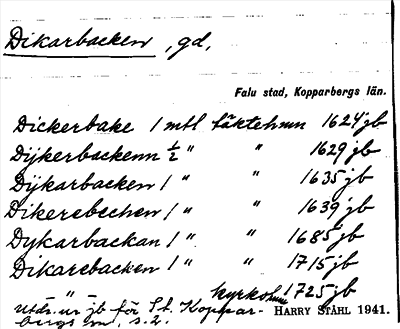 Dikarbacken, gd,
Falu stad, Kopparbergs län.
Dickerbake 1 mtl täktehmn 1624 jb
Dijkerbackenn ½ " " 1629 jb
Dijkarbacken 1 " " 1635 jb
Dikerebechen 1 " " 1639 jb
Dykarbackan 1 " " 1685 jb
Dikarebacken 1 " " 1715 jb
kyrkohmn 1725 jb
Utdr. ur jb för St. Koppar-
bergs sn, s. 2. HARRY STÅHL 1941.